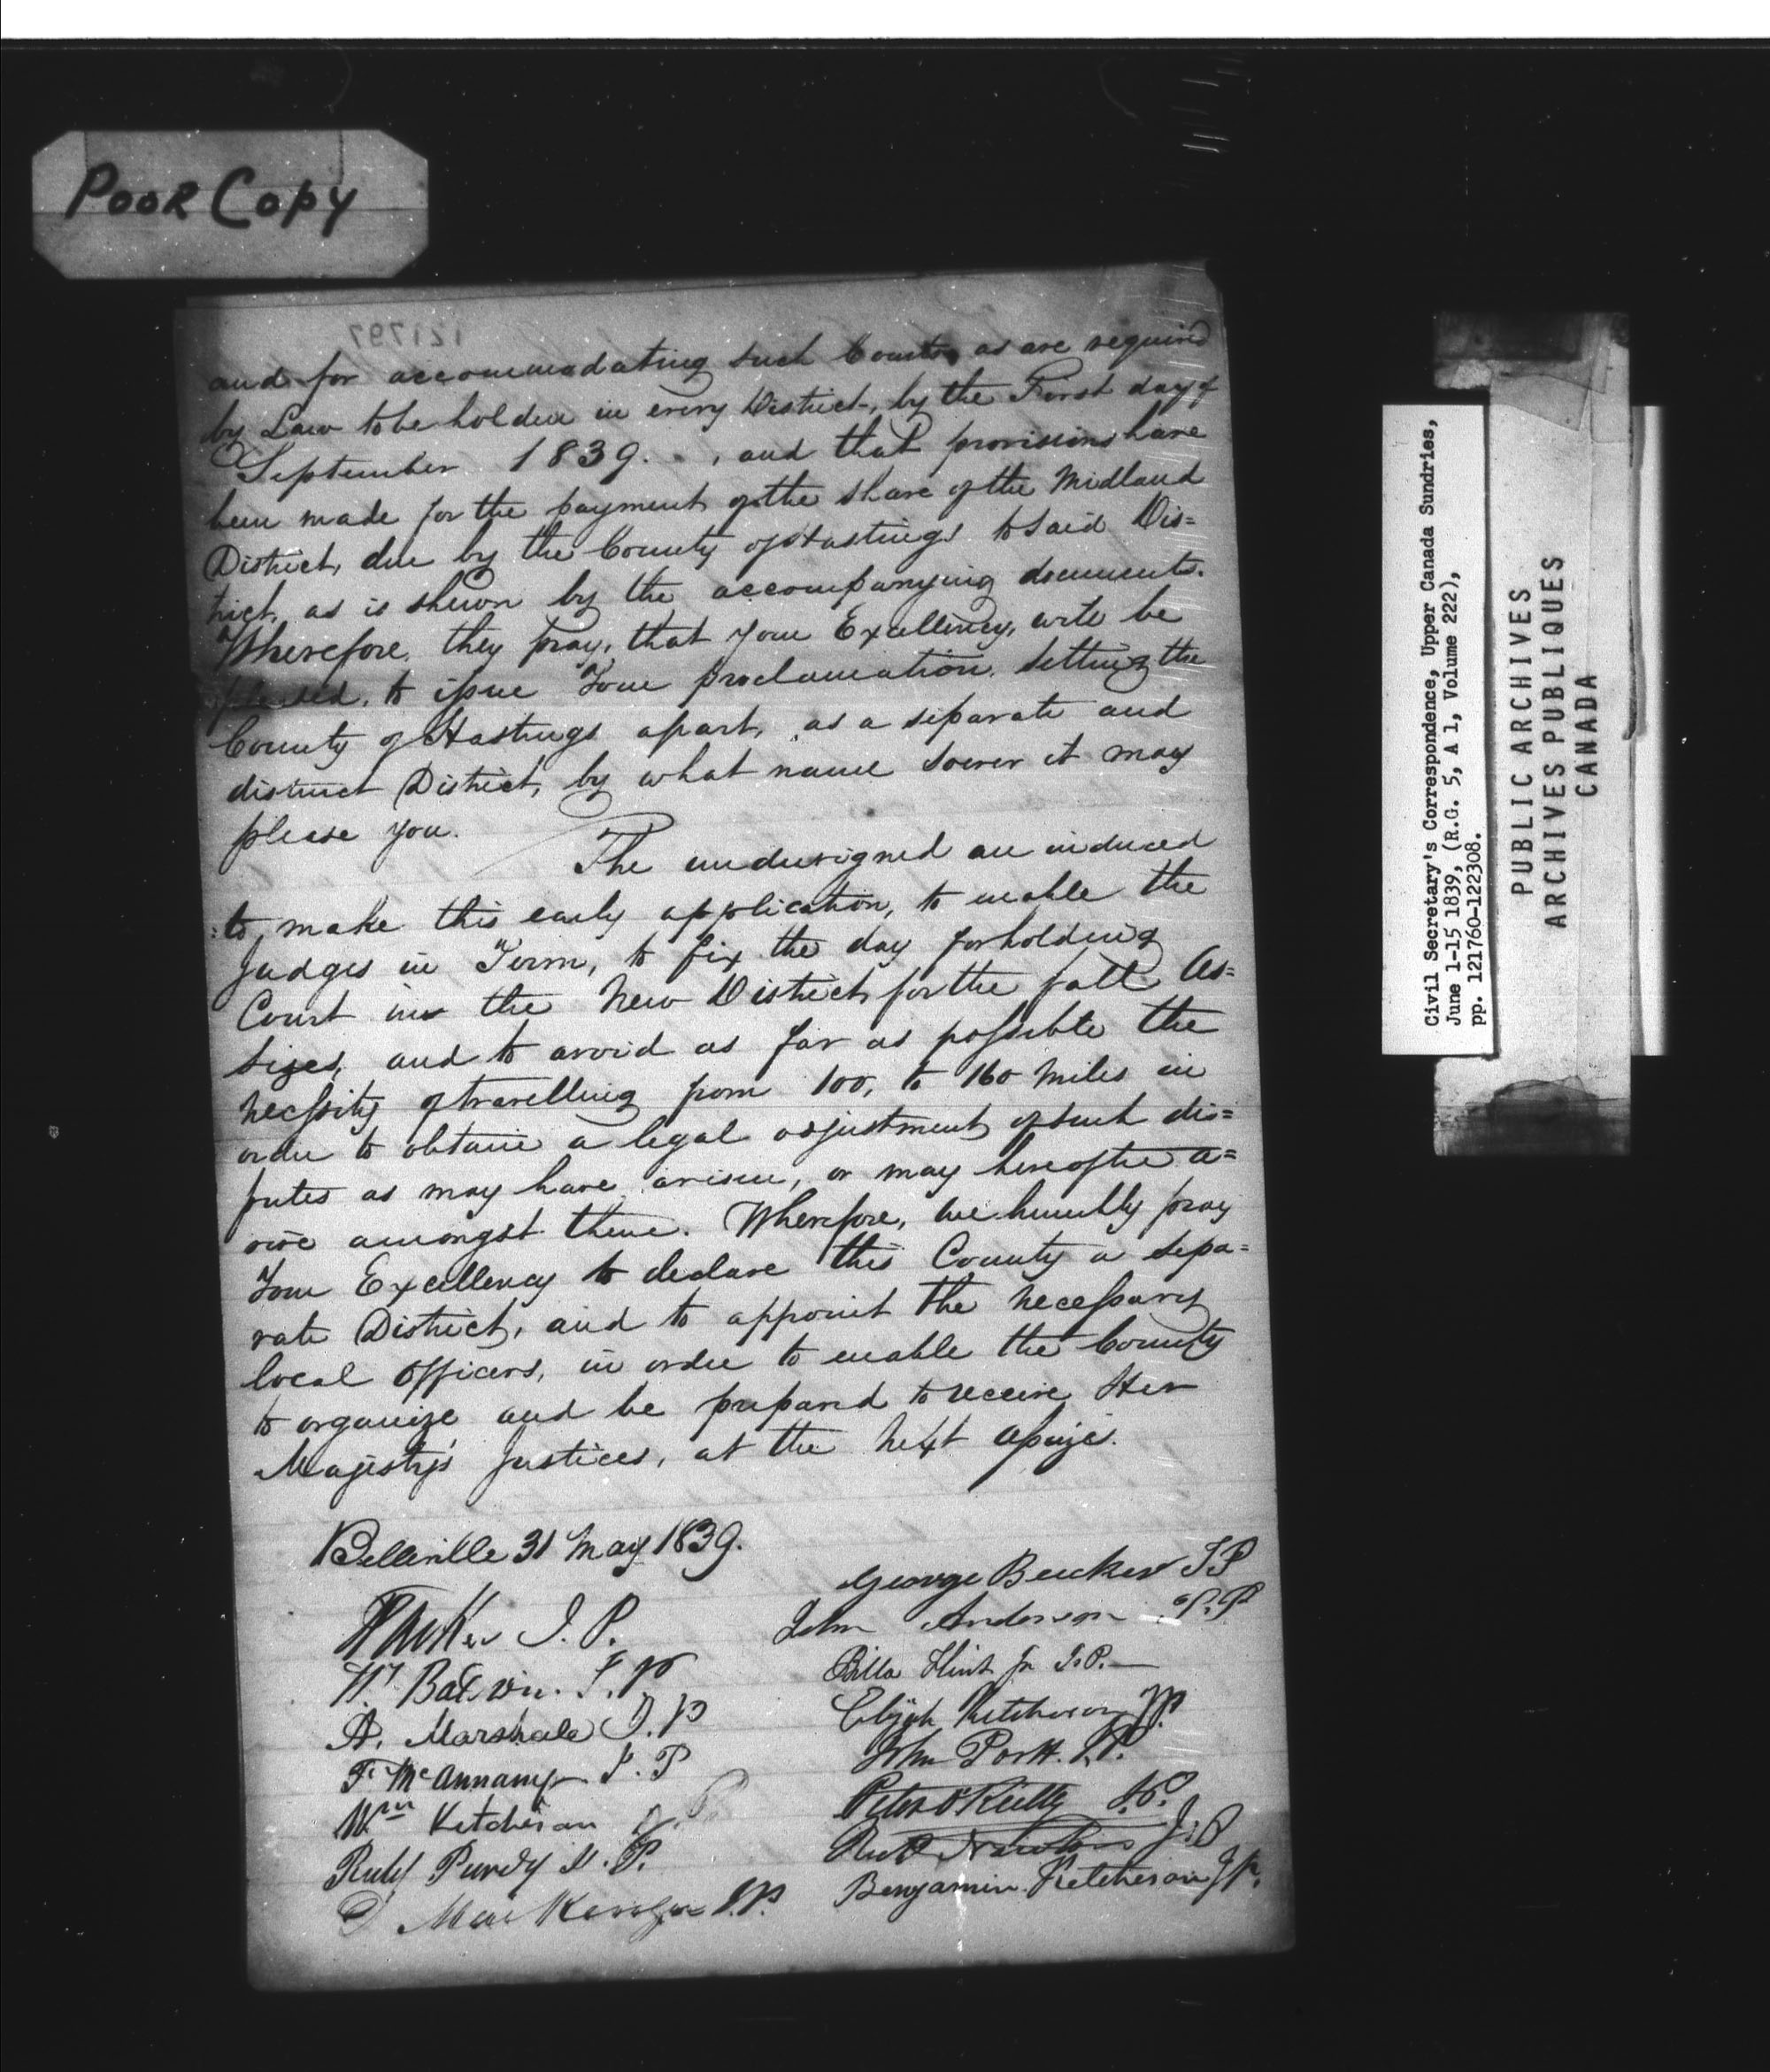 POOR COPY
121797
and for accommodating such Courts as are required
by Law to be holden in every District, by the First day of
September 1839. , and that provisions have
been made for the payment of the share of the Midland
District, due by the County of Hastings to said Dis=
trict, as is shewn by the accompanying documents.
Wherefore, they pray, that Your Excellency, will be
pleased, to issue Your proclamation, setting the
County of Hastings apart, as a separate and
distinct District, by what name soever it may
please you.
The undersigned are induced
to make this early application, to enable the
Judges in Term, to fix the day for holding
Court in the New District for the fall As=
sizes, and to avoid as far as possible the
necessity of travelling from 100, to 160 miles in
order to obtain a legal adjustment of such dis=
putes as may have arisen, or may hereafter a=
rise amongst them. Wherefore, we humbly pray
Your Excellency to declare this County a sepa=
rate District, and to appoint the necessary
local Officers, in order to enable the County
to organize and be prepared to receive Her
Majesty's Justices, at the next Assizes.
Belleville 31 May 1839.
George Benker J.P
J. P.
John Anderson J.P
J. P
Billa Flint Jr J.P.
A. Marshall J. P
Elijah Ketcheson JP.
F. McAnnany J. P
John Portt. J.P.
Wm Ketcheson J. P
Peter O'Reilly J.P.
Purdy J. P.
J. P
D MacKenzie J.P.
Benjamin Ketcheson JP.
Civil Secretary's Correspondence, Upper Canada Sundries,
June 1-15 1839, (R.G. 5, A 1, Volume 222),
pp. 121760-122308.
PUBLIC ARCHIVES
ARCHIVES PUBLIQUES
CANADA